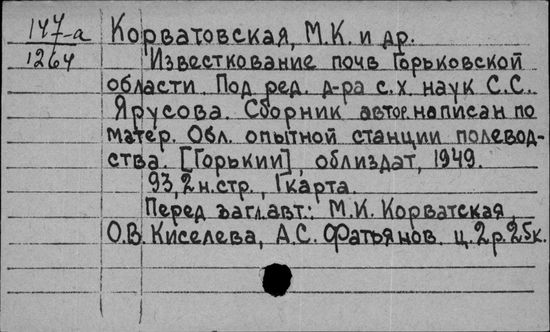 147-а
1264
Корватовская, М.К. и др.
Известкование почв Горьковской
области. Под ред. д-ра с.х. наук С.С.
Ярусова. Сборник автор. написан по
матер. Обл. опытной станции полевод-
ства. [Горький], облиздат, 1949.
93,2 н.стр., 1 карта.
Перед загл. авт.: М.К. Корватская,
О.В. Киселева, А.С. Фатьянов. ц. 2р. 25к.